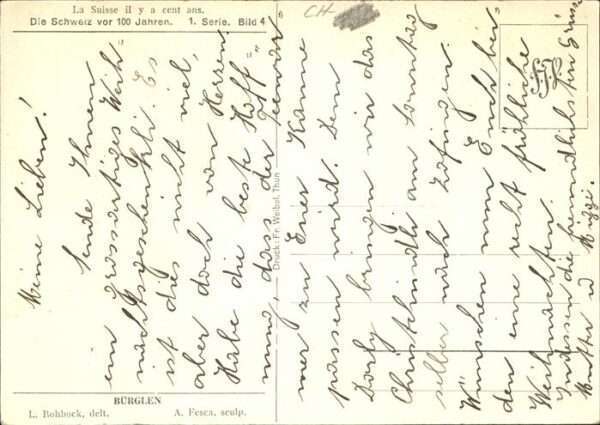 La Suisse il y a cent ans.
Die Schweiz vor 100 Jahren. 1. Serie. Bild 4
CH
Meine Lieben!
Sende Ihnen
ein grossartiges Weih
nachtsgeschenkli. Es
ist dies nicht viel,
aber doch von Herzen.
Habe die beste Hoff =
nung, dass der
mer zu Euer Kanne
passen wird. Dem
Dorly bringen wir das
Christchindli am Sonntag
selber nach Zofingen.
Wünschen nun Euch bei
den eine recht fröhliche
Weihnachten.
Indessen die freundlichsten Grüsse
Mutter u
Druck: Fr. Weibel, Thun
BÜRGLEN
L. Rohbock, delt. A. Fesca, sculp.